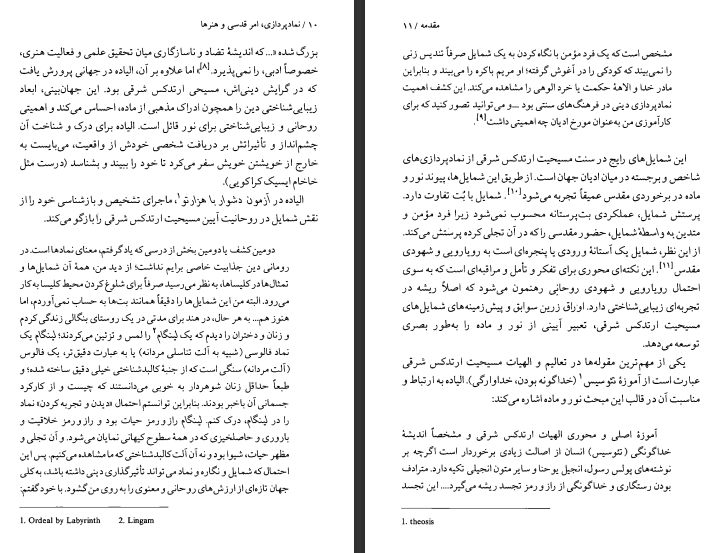 ۱۰ / نمادپردازی، امر قدسی و هنرها
بزرگ شده «...که اندیشهٔ تضاد و ناسازگاری میان تحقیق علمی و فعالیت هنری،
خصوصاً ادبی، را نمی‌پذیرد.[۸]» اما علاوه بر آن، الیاده در جهانی پرورش یافت
که در گرایش دینی‌اش، مسیحی ارتدکس شرقی بود. این جهان‌بینی، ابعاد
زیبایی‌شناختی دین را همچون ادراک مذهبی از ماده، احساس می‌کند و اهمیتی
روحانی و زیبایی‌شناختی برای نور قائل است. الیاده برای درک و شناخت آن
چشم‌انداز و تأثیراتش بر دریافت شخصی خودش از واقعیت، می‌بایست به
خارج از خویشتن خویش سفر می‌کرد تا خود را ببیند و بشناسد (درست مثل
خاخام ایسیک کراکویی).
الیاده در آزمون دشوار با هزارتو۱، ماجرای تشخیص و بازشناسی خود را از
نقش شمایل در روحانیت آیین مسیحیت ارتدکس شرقی را بازگو می‌کند.
دومین کشف یا دومین بخش از درسی که یاد گرفتم، معنای نمادها است. در
رومانی دین جذابیت خاصی برایم نداشت؛ از دید من، همهٔ آن شمایل‌ها و
تمثال‌ها در کلیساها، به نظر می‌رسید صرفاً برای شلوغ کردن محیط کلیسا به کار
می‌رود. البته من این شمایل‌ها را دقیقاً همانند بت‌ها به حساب نمی‌آوردم، اما
هنوز هم... به هر حال، در هند برای مدتی در یک روستای بنگالی زندگی کردم
و زنان و دختران را دیدم که یک لینگام۲ را لمس و تزئین می‌کردند؛ لینگام یک
نماد فالوسی (شبیه به آلت تناسلی مردانه) یا به عبارت دقیق‌تر، یک فالوس
(آلت مردانه) سنگی است که از جنبهٔ کالبدشناختی خیلی دقیق ساخته شده؛ و
طبعاً حداقل زنان شوهردار به خوبی می‌دانستند که چیست و از کارکرد
جسمانی آن باخبر بودند. بنابراین توانستم احتمال «دیدن و تجربه کردن» نماد
را در لینگام، درک کنم. لینگام راز و رمز حیات بود و راز و رمز خلاقیت و
باروری و حاصلخیزی که در همهٔ سطوح کیهانی نمایان می‌شود. و آن تجلی و
مظهر حیات، شیوا بود و نه آن آلت کالبدشناختی که ما مشاهده می‌کنیم. پس این
احتمال که شمایل و نگاره و نماد می‌تواند تأثیرگذاری دینی داشته باشد، به‌کلی
جهان تازه‌ای از ارزش‌های روحانی و معنوی را به روی من گشود. با خود گفتم:
1. Ordeal by Labyrinth 2. Lingam
مقدمه / ۱۱
مشخص است که یک فرد مؤمن با نگاه کردن به یک شمایل صرفاً تندیس زنی
را نمی‌بیند که کودکی را در آغوش گرفته؛ او مریم باکره را می‌بیند و بنابراین
مادر خدا و الاههٔ حکمت یا خرد الوهی را مشاهده می‌کند. این کشف اهمیت
نمادپردازی دینی در فرهنگ‌های سنتی بود ــ و می‌توانید تصور کنید که برای
کارآموزی من به‌عنوان مورخ ادیان چه اهمیتی داشت[۹].
این شمایل‌های رایج در سنت مسیحیت ارتدکس شرقی از نمادپردازی‌های
شاخص و برجسته در میان ادیان جهان است. از طریق این شمایل‌ها، پیوند نور و
ماده در برخوردی مقدس عمیقاً تجربه می‌شود[۱۰]. شمایل با بُت تفاوت دارد.
پرستش شمایل، عملکردی بت‌پرستانه محسوب نمی‌شود زیرا فرد مؤمن و
متدین به واسطهٔ شمایل، حضور مقدسی را که در آن تجلی کرده پرستش می‌کند.
از این نظر، شمایل یک آستانهٔ ورودی یا پنجره‌ای است به رویارویی و شهودی
مقدس[۱۱]. این نکته‌ای محوری برای تفکر و تأمل و مراقبه‌ای است که به سوی
احتمال رویارویی و شهودی روحانی رهنمون می‌شود که اصلاً ریشه در
تجربه‌ای زیبایی‌شناختی دارد. اوراق زرین سوابق و پیش‌زمینه‌های شمایل‌های
مسیحیت ارتدکس شرقی، تعبیر آیینی از نور و ماده را به‌طور بصری
توسعه می‌دهد.
یکی از مهم‌ترین مقوله‌ها در تعالیم و الهیات مسیحیت ارتدکس شرقی
عبارت است از آموزهٔ تئوسیس۱ (خداگونه بودن، خداوارگی). الیاده به ارتباط و
مناسبت آن در قالب این مبحث نور و ماده اشاره می‌کند:
آموزهٔ اصلی و محوری الهیات ارتدکس شرقی و مشخصاً اندیشهٔ
خداگونگی (تئوسیس) انسان از اصالت زیادی برخوردار است اگرچه بر
نوشته‌های پولس رسول، انجیل یوحنا و سایر متون انجیلی تکیه دارد. مترادف
بودن رستگاری و خداگونگی از راز و رمز تجسد ریشه می‌گیرد.... این تجسد
1. theosis